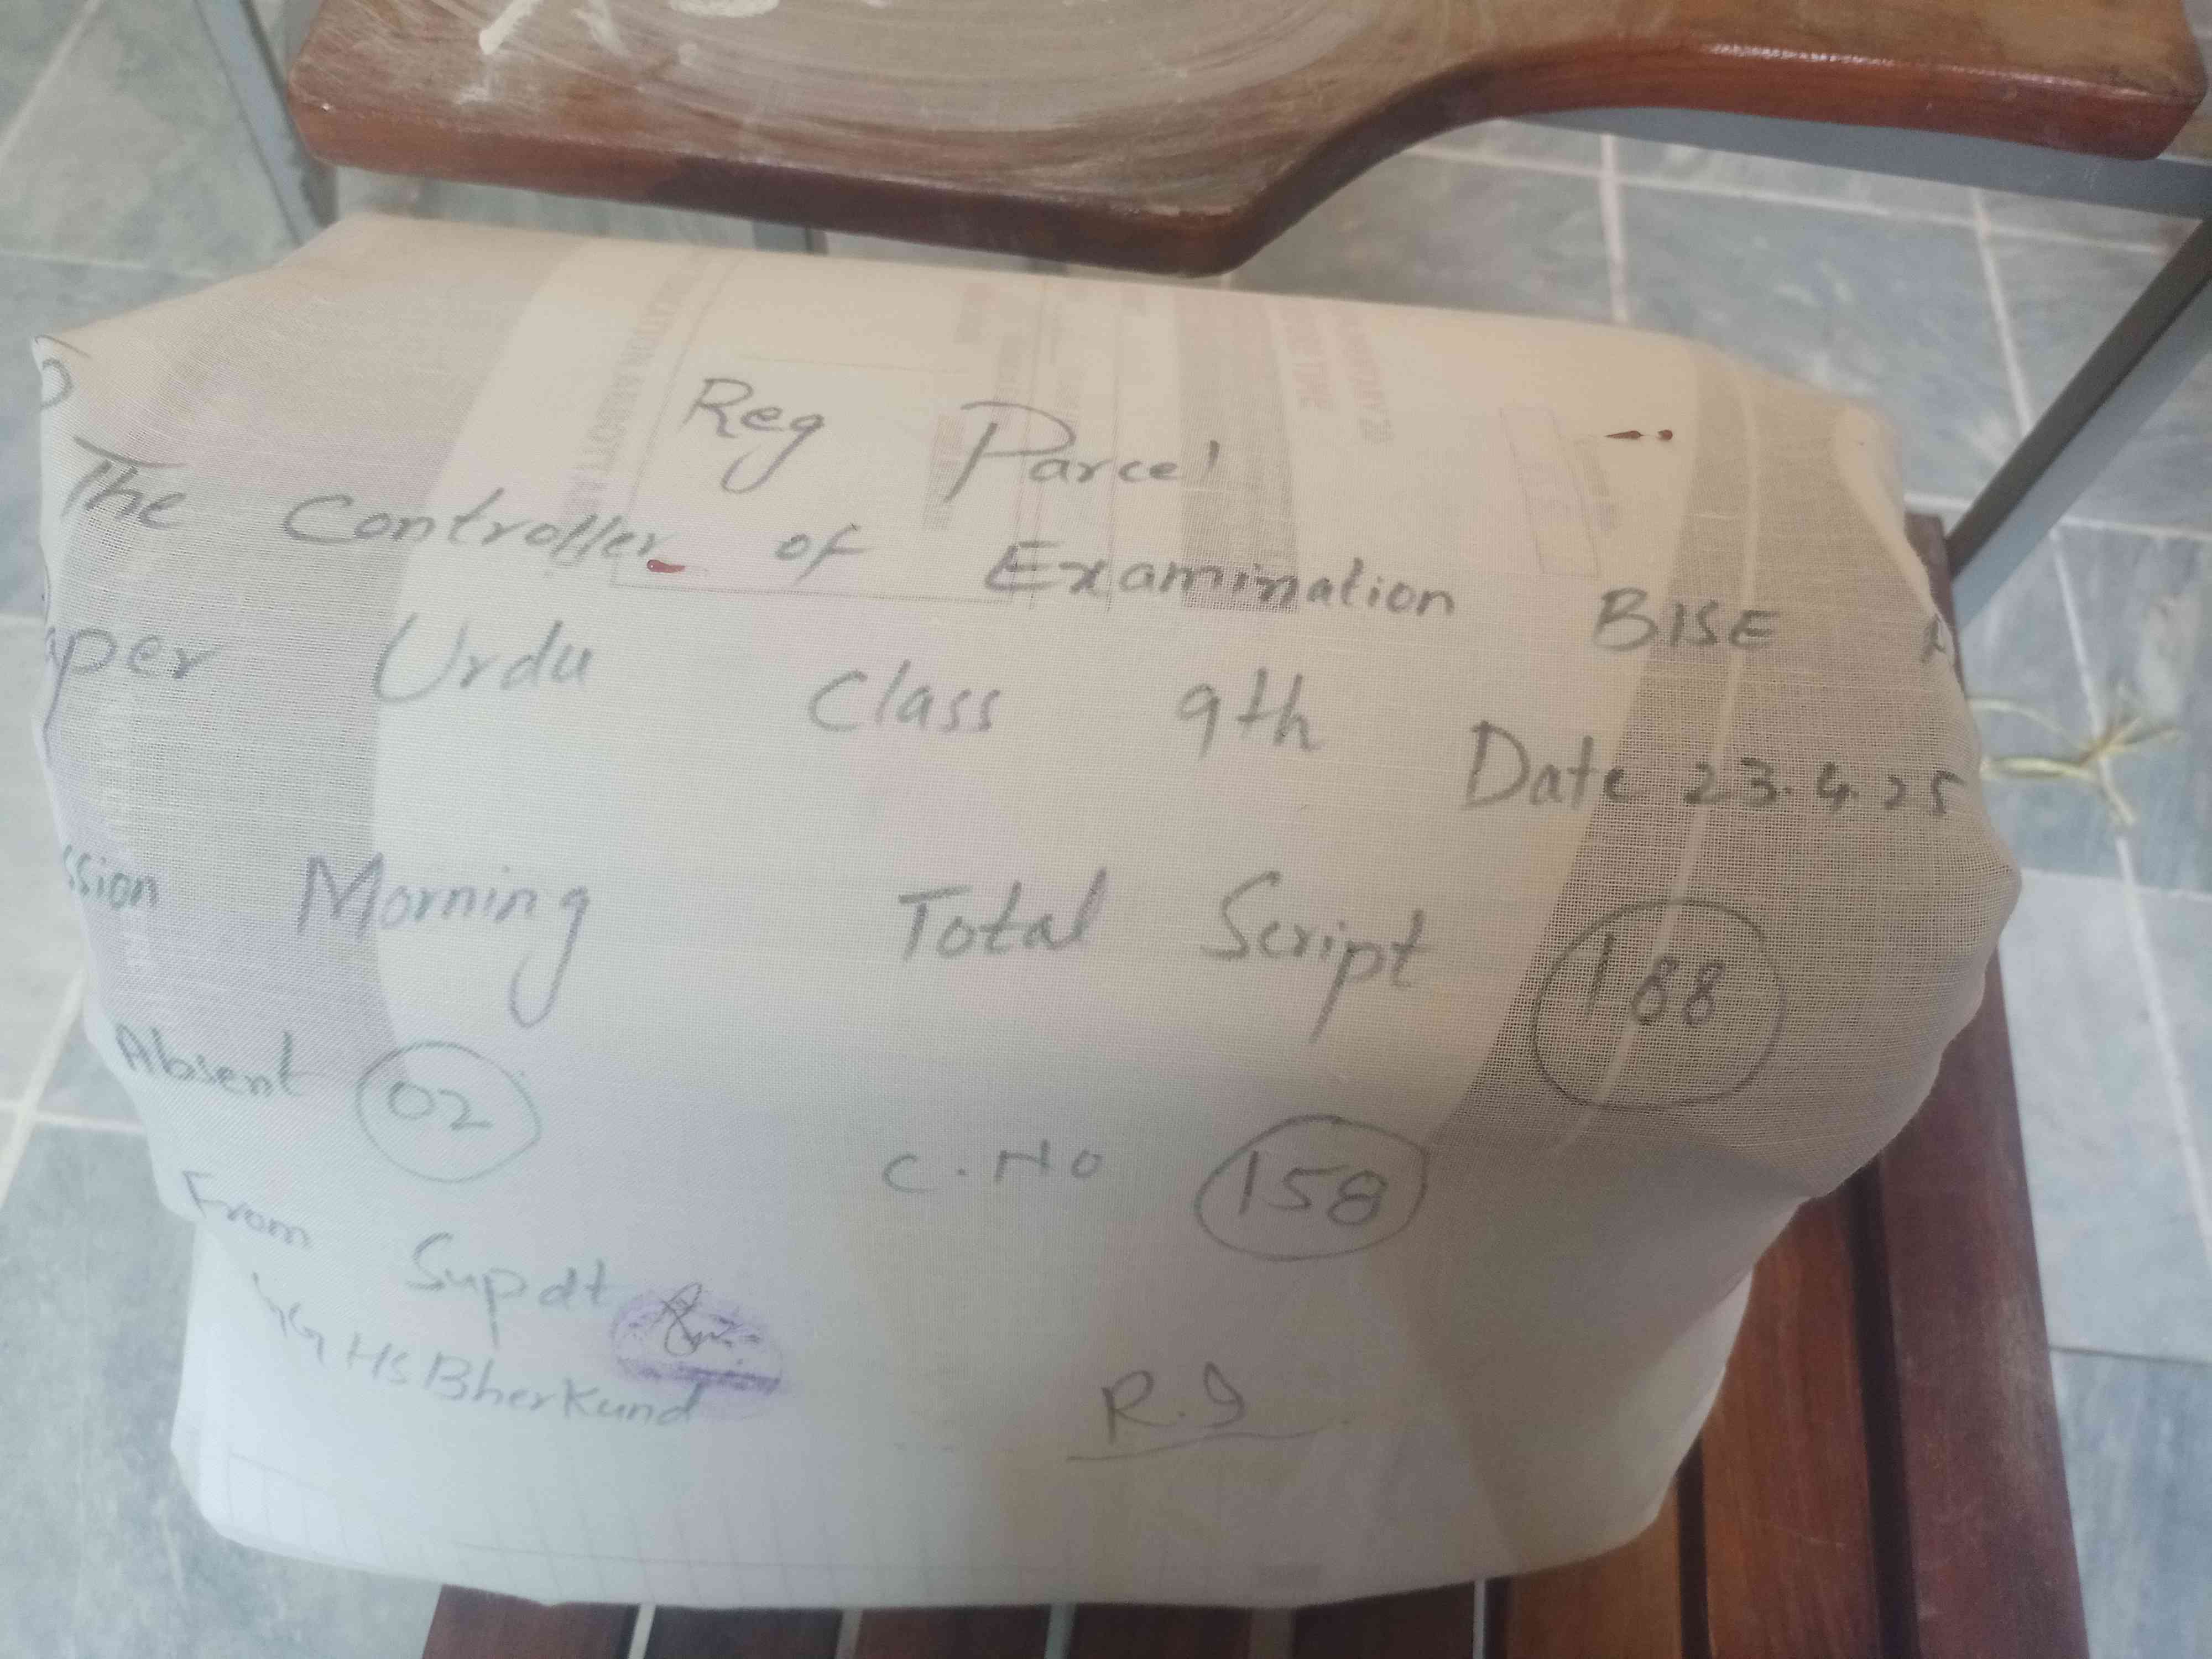 Reg Parcel
The Controller of Examination BISE A
aper Urdu Class 9th Date 23.4.25
ssion Morning Total Script 188
Absent 02 C.No 158
From Supdt
GHS BherKund
R.I